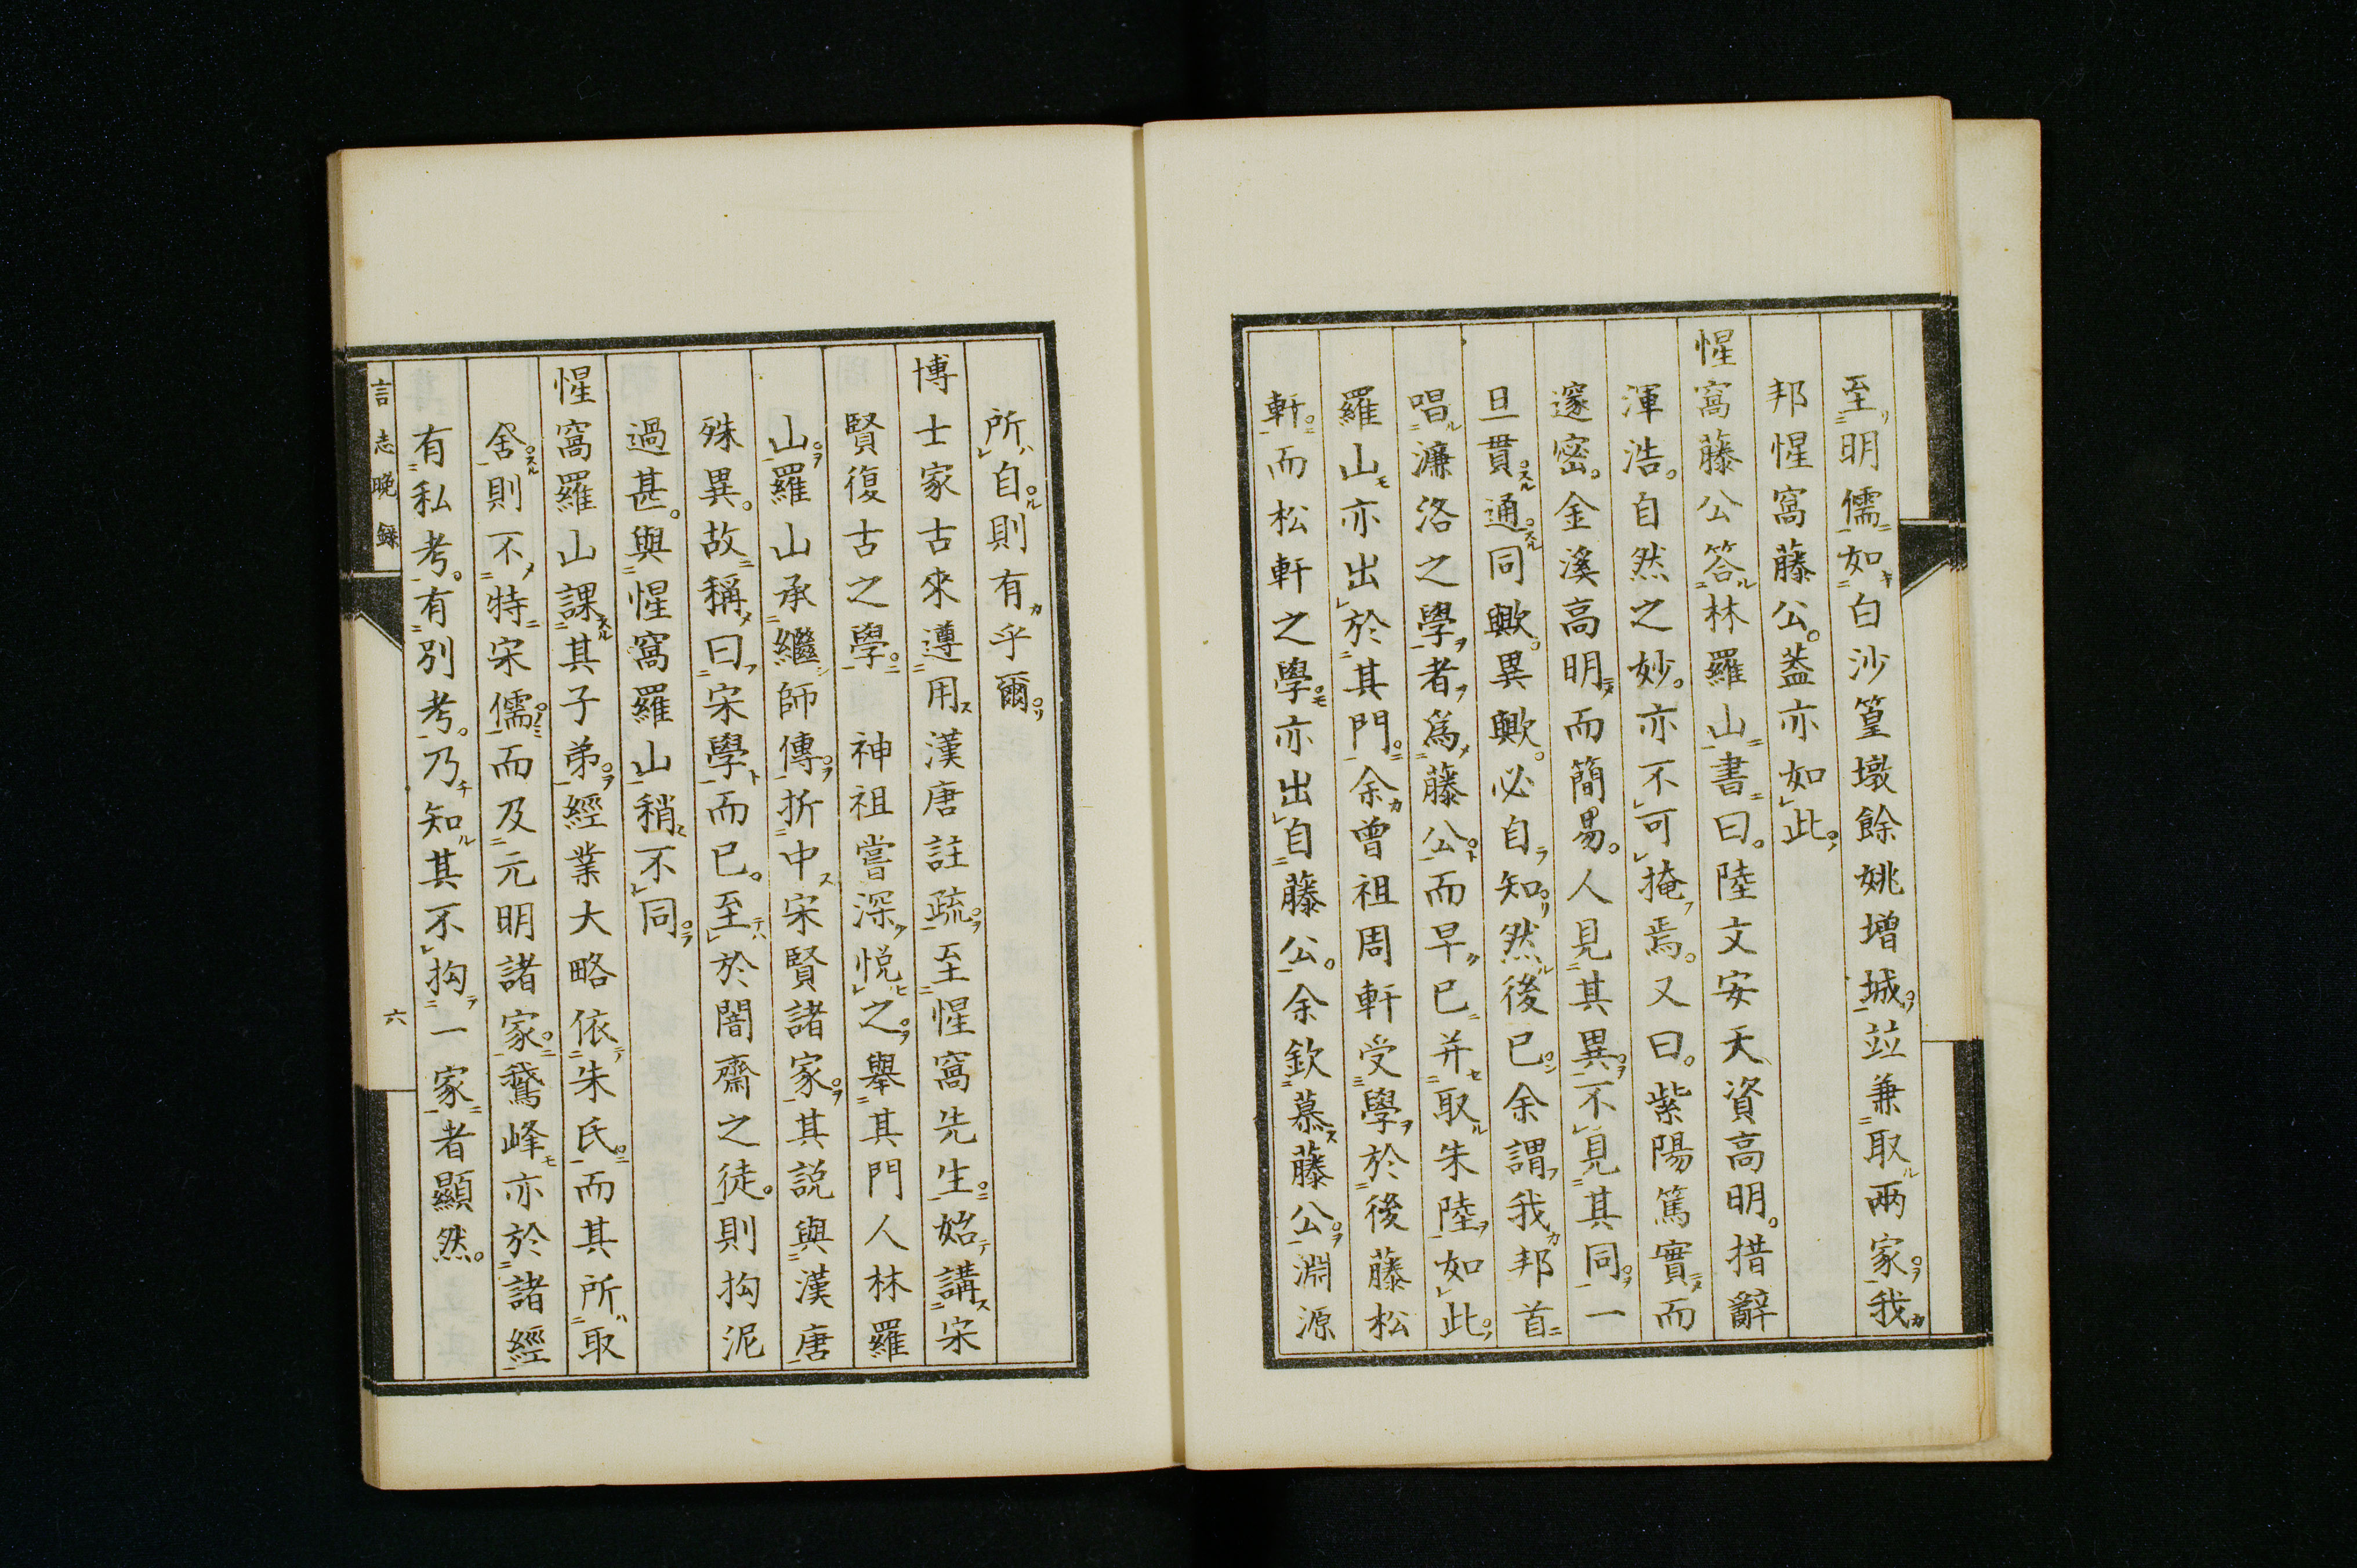 至明儒如白沙篁墩餘姚增城竝兼取兩家我
邦惺窩藤公。蓋亦如此。
惺窩藤公答林羅山書曰。陸文安天資高明。措辭
渾浩。自然之妙。亦不可掩焉。又曰。紫陽篤實而
邃密。金溪高明而簡易。人見其異。不見其同。一
旦貫通。同歟。異歟。必自知。然後已。余謂我邦首
唱濂洛之學者爲藤公。而早已并取朱陸如此。
羅山亦出於其門。余曾祖周軒受學於後藤松
軒。而松軒之學。亦出自藤公。余欽慕藤公。淵源
所自則有乎爾。
博士家古來遵用漢唐註疏。至惺窩先生。始講宋
賢復古之學。神祖嘗深悅之。舉其門人林羅
山。羅山承繼師傳。折中宋賢諸家。其説與漢唐
殊異。故稱曰宋學而已。至於闇齋之徒。則拘泥
過甚。與惺窩羅山稍不同。
惺窩羅山課其子弟。經業大略依朱氏。而其所取
舍。則不特宋儒。而及元明諸家。鵞峰亦於諸經
有私考。有別考。乃知其不拘一家者顯然。
言志晚錄
六